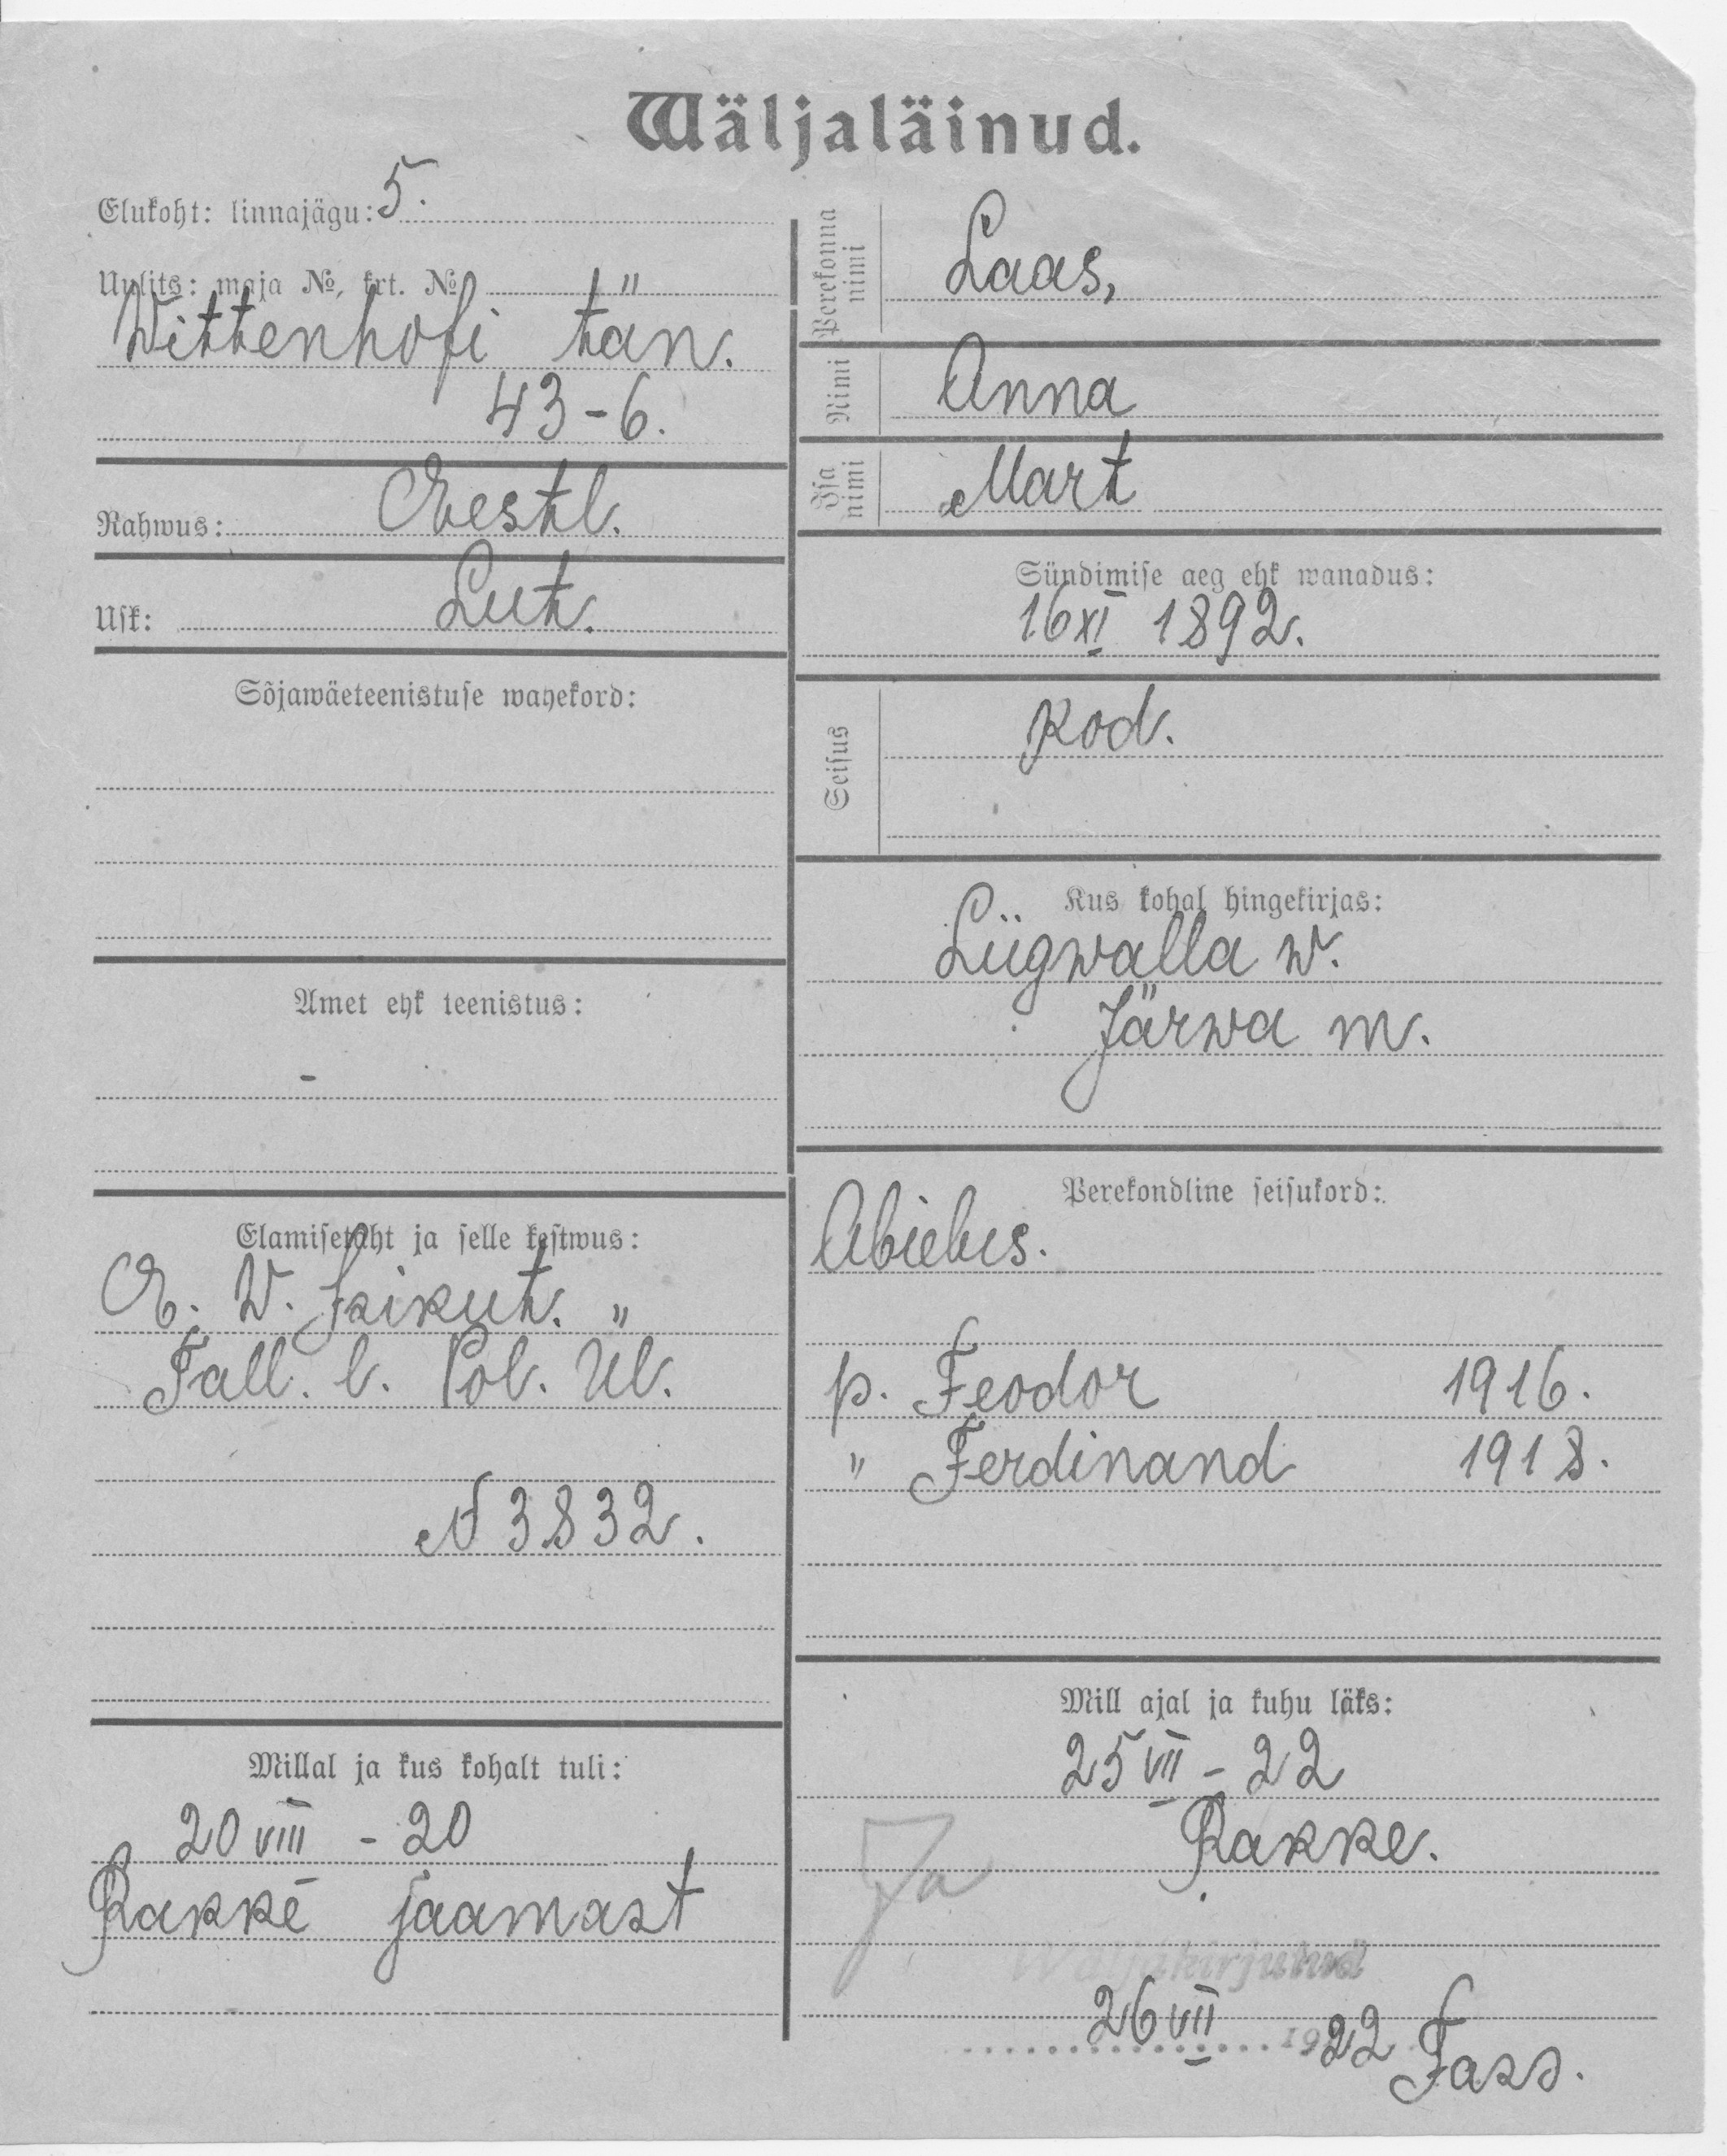 Wäljaläinud.
Elukoht: linnajägu: 5.
Uulits: maja №, krt. №
Wittenhofi tän.
43-6.
Rahwus: Eestl.
Usk: Lut.
Sõjawäeteenistuse wahekord:
Amet ehk teenistus:
-
Elamisetäht ja selle kestwus:
E. W. Isikut.
Tall. l. Pol. Ül.
N 3832.
Millal ja kus kohalt tuli:
20 VIII - 20
Rakke jaamast
Perekonna nimi
Laas,
Nimi
Anna
Isa nimi
Mart
Sündimise aeg ehk wanadus:
16 XI 1892.
Seisus
kod.
Kus kohal hingekirjas:
Liigwalla w.
Järwa m.
Perekondline seisukord:
Abielus.
p. Feodor 1916.
" Ferdinand 1918.
Mill ajal ja kuhu läks:
25 VII - 22
Rakke.
Ja
Wäljakirjutud
26 VII 1922